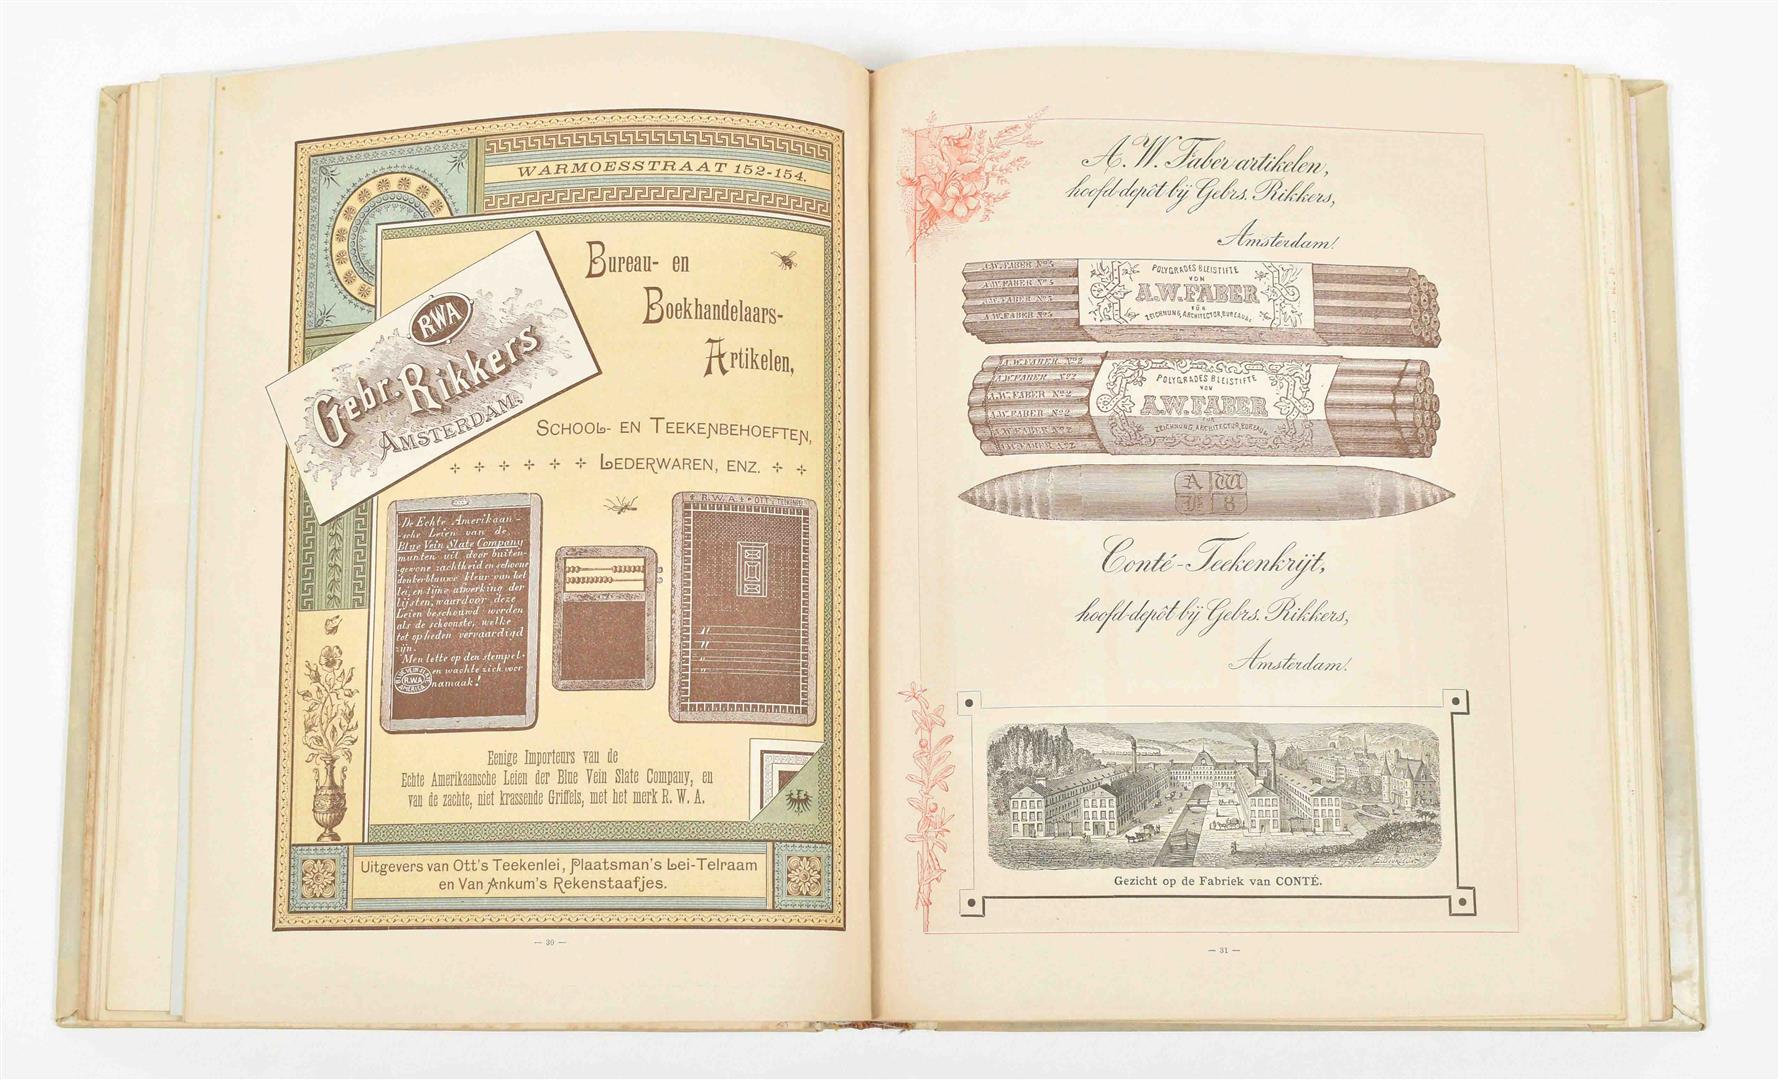 WARMOESSTRAAT 152-154.
RWA
Gebr. Rikkers
AMSTERDAM.
Bureau- en
Boekhandelaars-
Artikelen,
SCHOOL- EN TEEKENBEHOEFTEN,
LEDERWAREN, ENZ.
De Echte Amerikaan-
-sche Leien van de
Blue Vein Slate Company
munten uit door buiten-
gewone zachtheid en schoone
donkerblauwe kleur van het
lei, en fijne afwerking der
lijsten, waardoor deze
Leien beschouwd worden
als de schoonste, welke
tot op heden vervaardigd
zijn.
Men lette op den stempel
en wachte zich voor
namaak!
BLUE VEIN SLATE
R.W.A.
AMERICA
R.W.A. OTT'S TEEKENLEI
Eenige Importeurs van de
Echte Amerikaansche Leien der Blue Vein Slate Company, en
van de zachte, niet krassende Griffels, met het merk R. W. A.
Uitgevers van Ott's Teekenlei, Plaatsman's Lei-Telraam
en Van Ankum's Rekenstaafjes.
— 30 —
A. W. Faber artikelen,
hoofd-depôt bij Gebrs. Rikkers,
Amsterdam!
A.W. FABER No 5
A.W. FABER No 5
A.W. FABER No 5
A.W. FABER No 5
POLYGRADES BLEISTIFTE
VON
A.W. FABER
FÜR
ZEICHNUNG, ARCHITECTUR, BUREAU &c
A.W. FABER No 2
A.W. FABER No 2
A.W. FABER No 2
A.W. FABER No 2
A.W. FABER No 2
A.W. FABER No 2
POLYGRADES BLEISTIFTE
VON
A.W. FABER
FÜR
ZEICHNUNG, ARCHITECTUR, BUREAU &c
A W
8
Conté-Teekenkrijt,
hoofd-depôt bij Gebrs. Rikkers,
Amsterdam!
Gezicht op de Fabriek van CONTÉ.
— 31 —